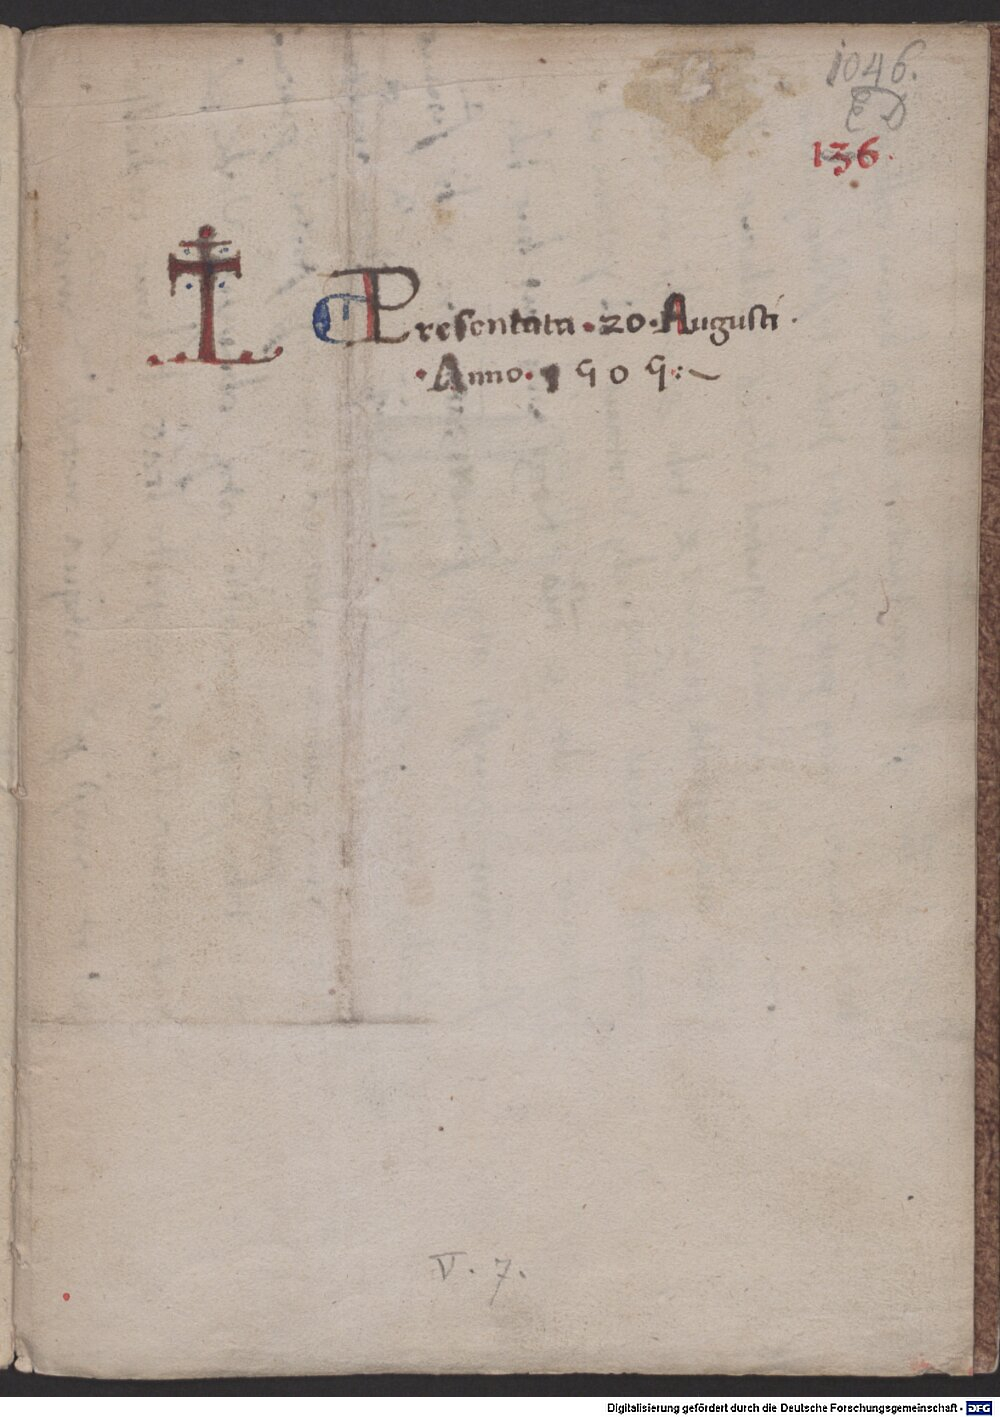 1046.
ED
136.
Presentata · 20 · Augusti ·
· Anno · 1505 :~
V. 7.
Digitalisierung gefördert durch die Deutsche Forschungsgemeinschaft - DFG